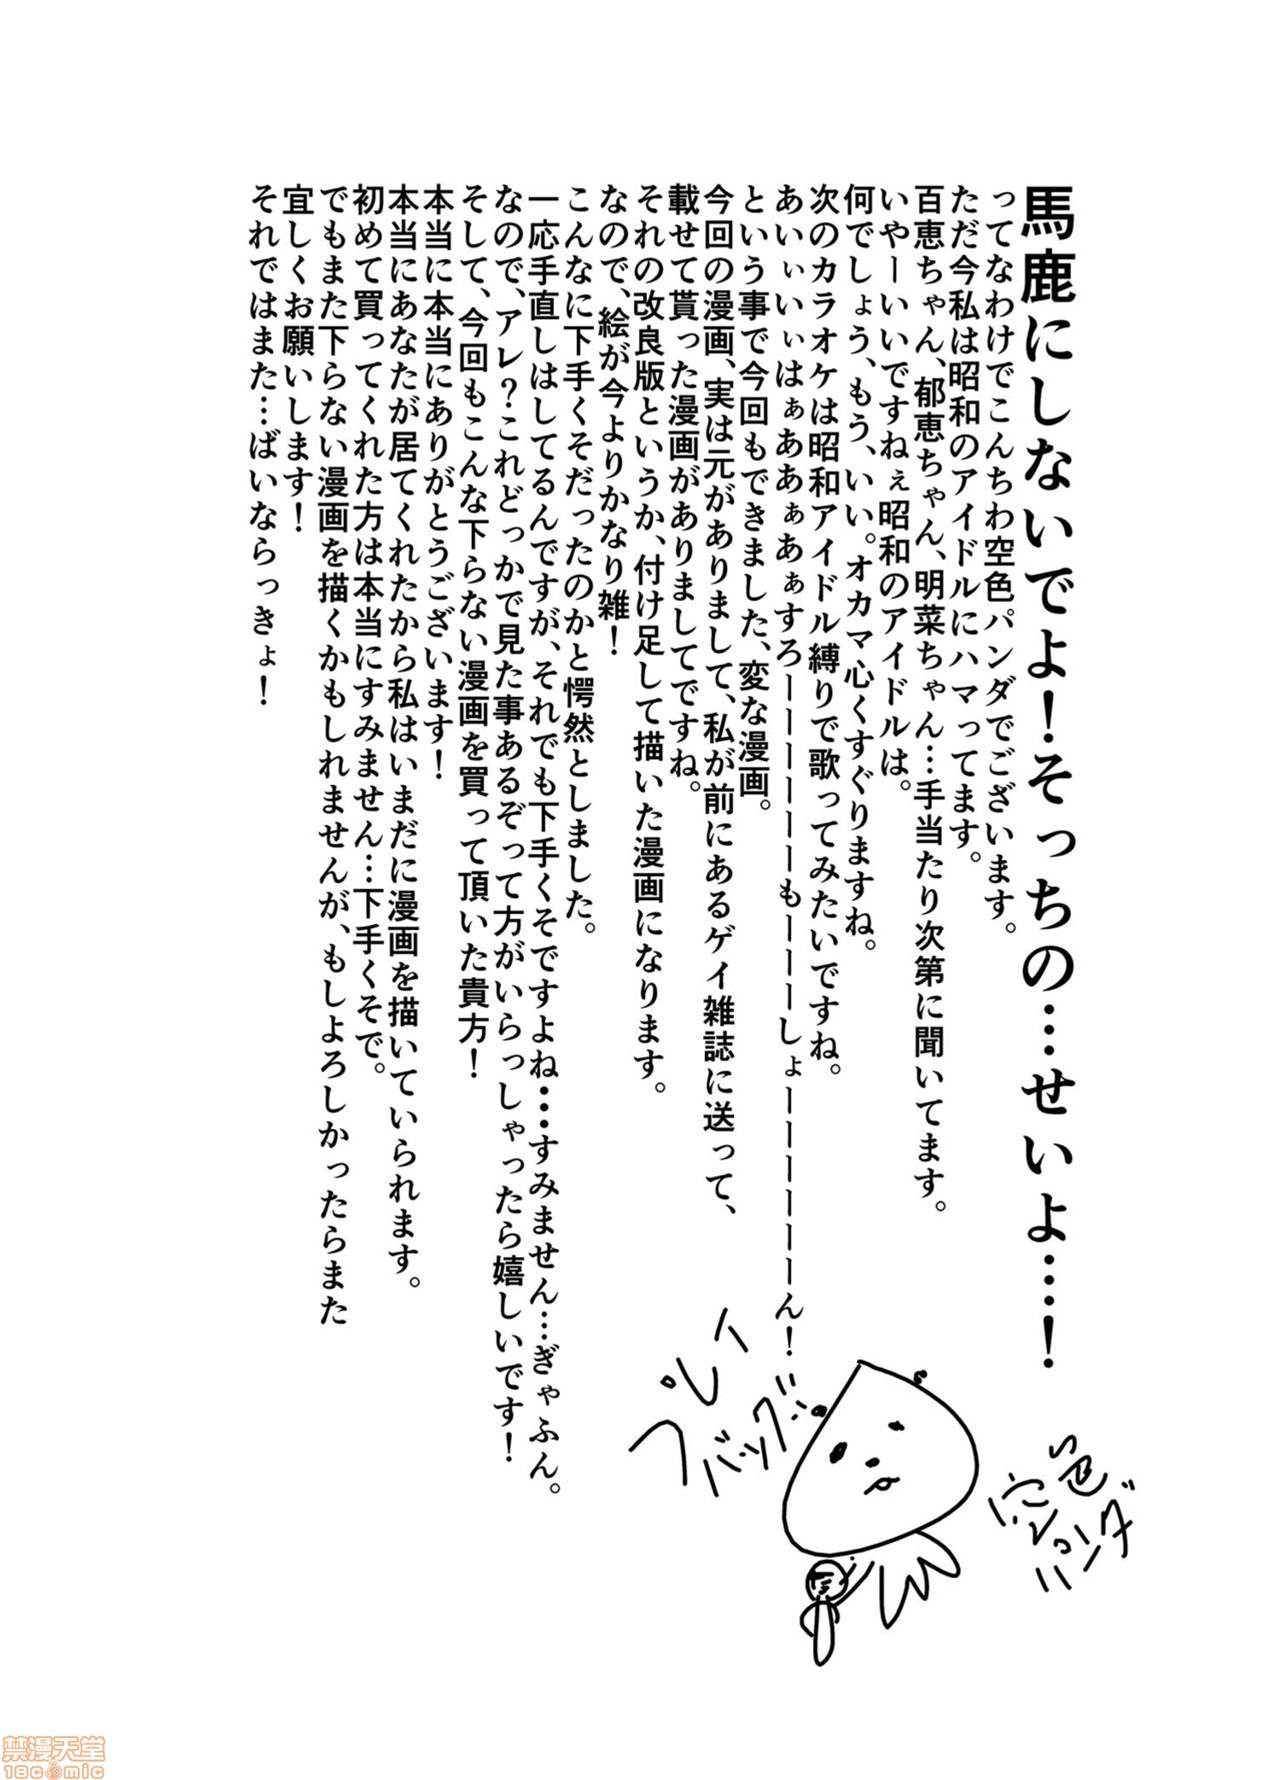 馬鹿にしないでよ！そっちの…せいよ…！
ってなわけでこんちわ空色パンダでございます。
ただ今私は昭和のアイドルにハマってます。
百恵ちゃん、郁恵ちゃん、明菜ちゃん…手当たり次第に聞いてます。
いやーいいですねぇ昭和のアイドルは。
何でしょう、もう、いい。オカマ心くすぐりますね。
次のカラオケは昭和アイドル縛りで歌ってみたいですね。
あいぃいぃはぁああぁあぁすろーーーーーーもーーーしょーーーーーーん！
という事で今回もできました、変な漫画。
今回の漫画、実は元がありまして、私が前にあるゲイ雑誌に送って、
載せて貰った漫画がありましてですね。
それの改良版というか、付け足して描いた漫画になります。
なので、絵が今よりかなり雑！
こんなに下手くそだったのかと愕然としました。
一応手直しはしてるんですが、それでも下手くそですよね…すみません…ぎゃふん。
なので、アレ？これどっかで見た事あるぞって方がいらっしゃったら嬉しいです！
そして、今回もこんな下らない漫画を買って頂いた貴方！
本当に本当にありがとうございます！
本当にあなたが居てくれたから私はいまだに漫画を描いていられます。
初めて買ってくれた方は本当にすみません…下手くそで。
でもまた下らない漫画を描くかもしれませんが、もしよろしかったらまた
宜しくお願いします！
それではまた…ばいならっきょ！
プレイ
バック!!
空色
パンダ
禁漫天堂
18comic